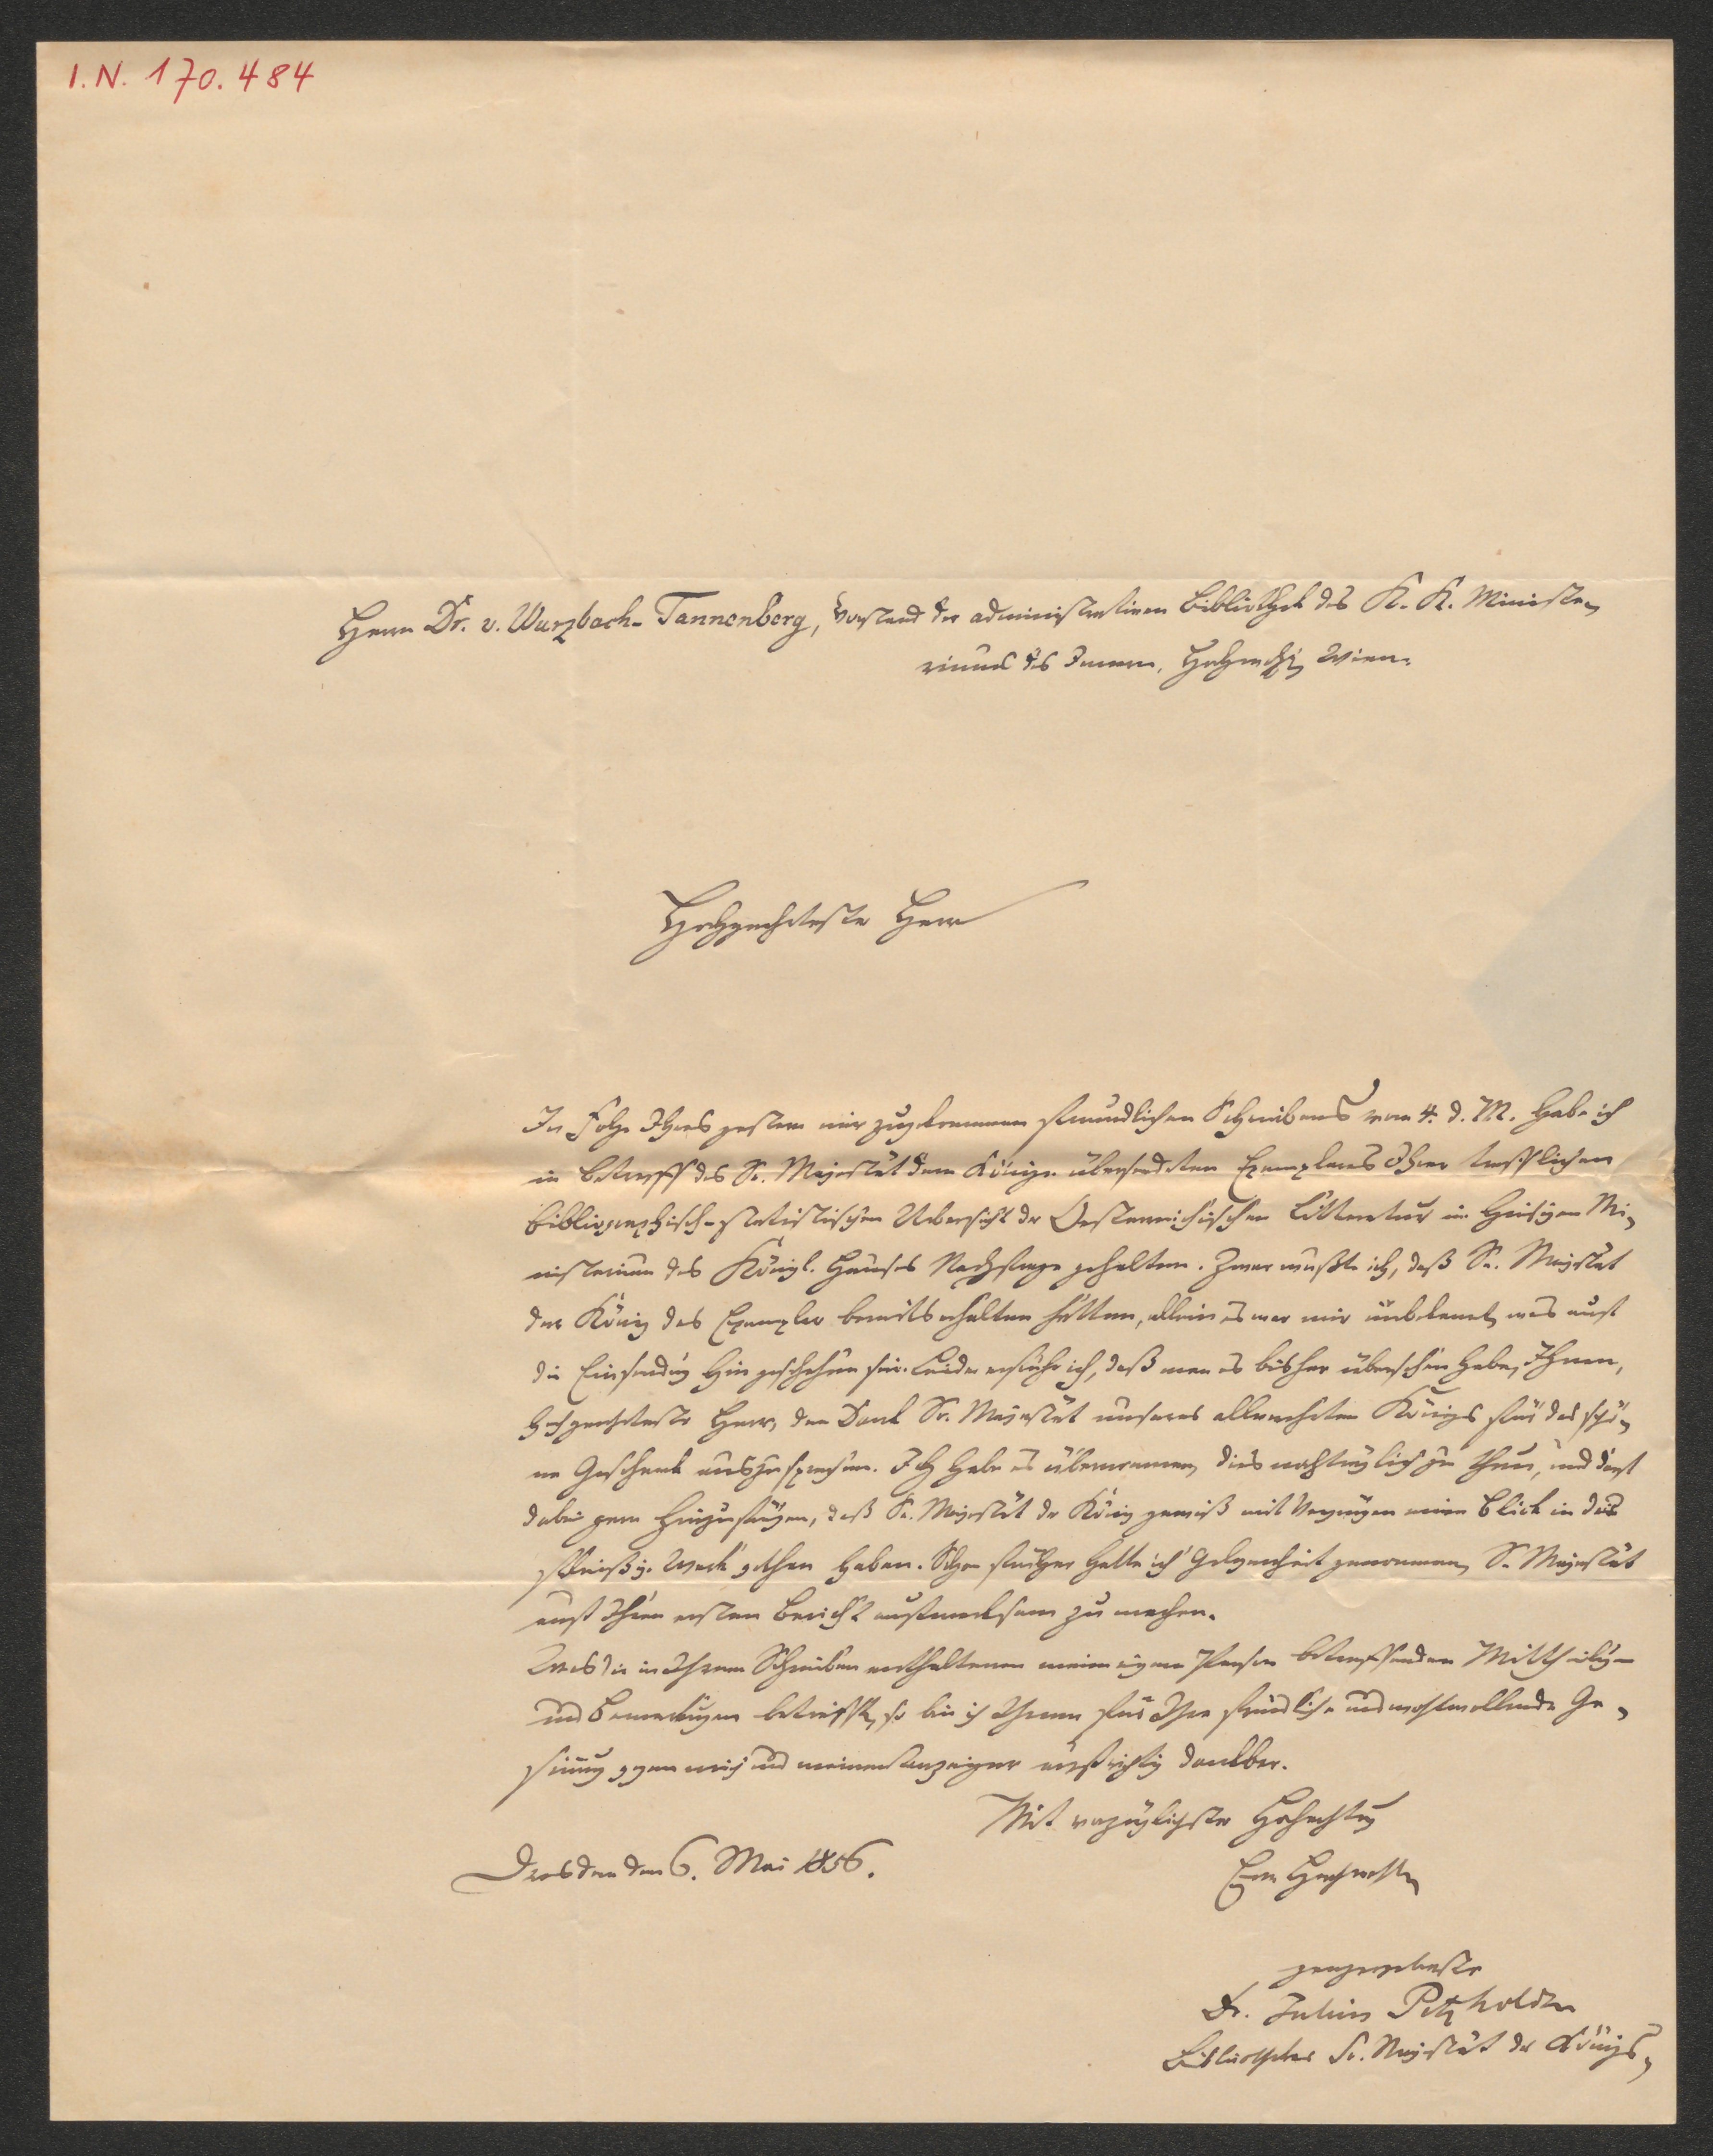 I.N. 170.484
Herrn Dr. v. Wurzbach-Tannenberg, Vorstand der administrativen Bibliothek des K. K. Ministe-
riums des Innern, Wien.
Hochgeehrtester Herr
In Folge Ihres gestern mir zugekommenen freundlichen Schreibens vom 4. d. M. habe ich
in Betreff des Sr. Majestät dem Könige übersendeten Exemplares Ihrer trefflichen
bibliographisch-statistischen Uebersicht der Oesterreichischen Litteratur im hiesigen Mi-
nisterium des Königl. Hauses Nachfrage gehalten. Zwar wußte ich, daß Se. Majestät
der König das Exemplar bereits erhalten hätten, allein es war mir unbekannt, was auf
die Einsendung hin geschehen sei. Leider erfuhr ich, daß man es bisher übersehen habe, Ihnen,
hochgeehrtester Herr, den Dank Sr. Majestät unseres allverehrten Königs für das schö-
ne Geschenk auszusprechen. Ich habe es übernommen, dies nachträglich zu thun, und darf
dabei gern hinzufügen, daß Se. Majestät der König gewiß mit Vergnügen einen Blick in das
fleißige Werk gethan haben. Schon früher hatte ich Gelegenheit genommen, Se. Majestät
auf Ihren ersten Bericht aufmerksam zu machen.
Was die in Ihrem Schreiben enthaltenen meine eigene Person betreffenden Mittheilungen
und Bemerkungen betrifft, so bin ich Ihnen für Ihre freundliche und wohlwollende Ge-
sinnung gegen mich und meinen Anzeiger aufrichtig dankbar.
Mit vorzüglichster Hochachtung
Dresden den 6. Mai 1856.
Euer
ganz ergebenster
Dr. Julius Petzholdt
Bibliothekar Sr. Majestät des Königs